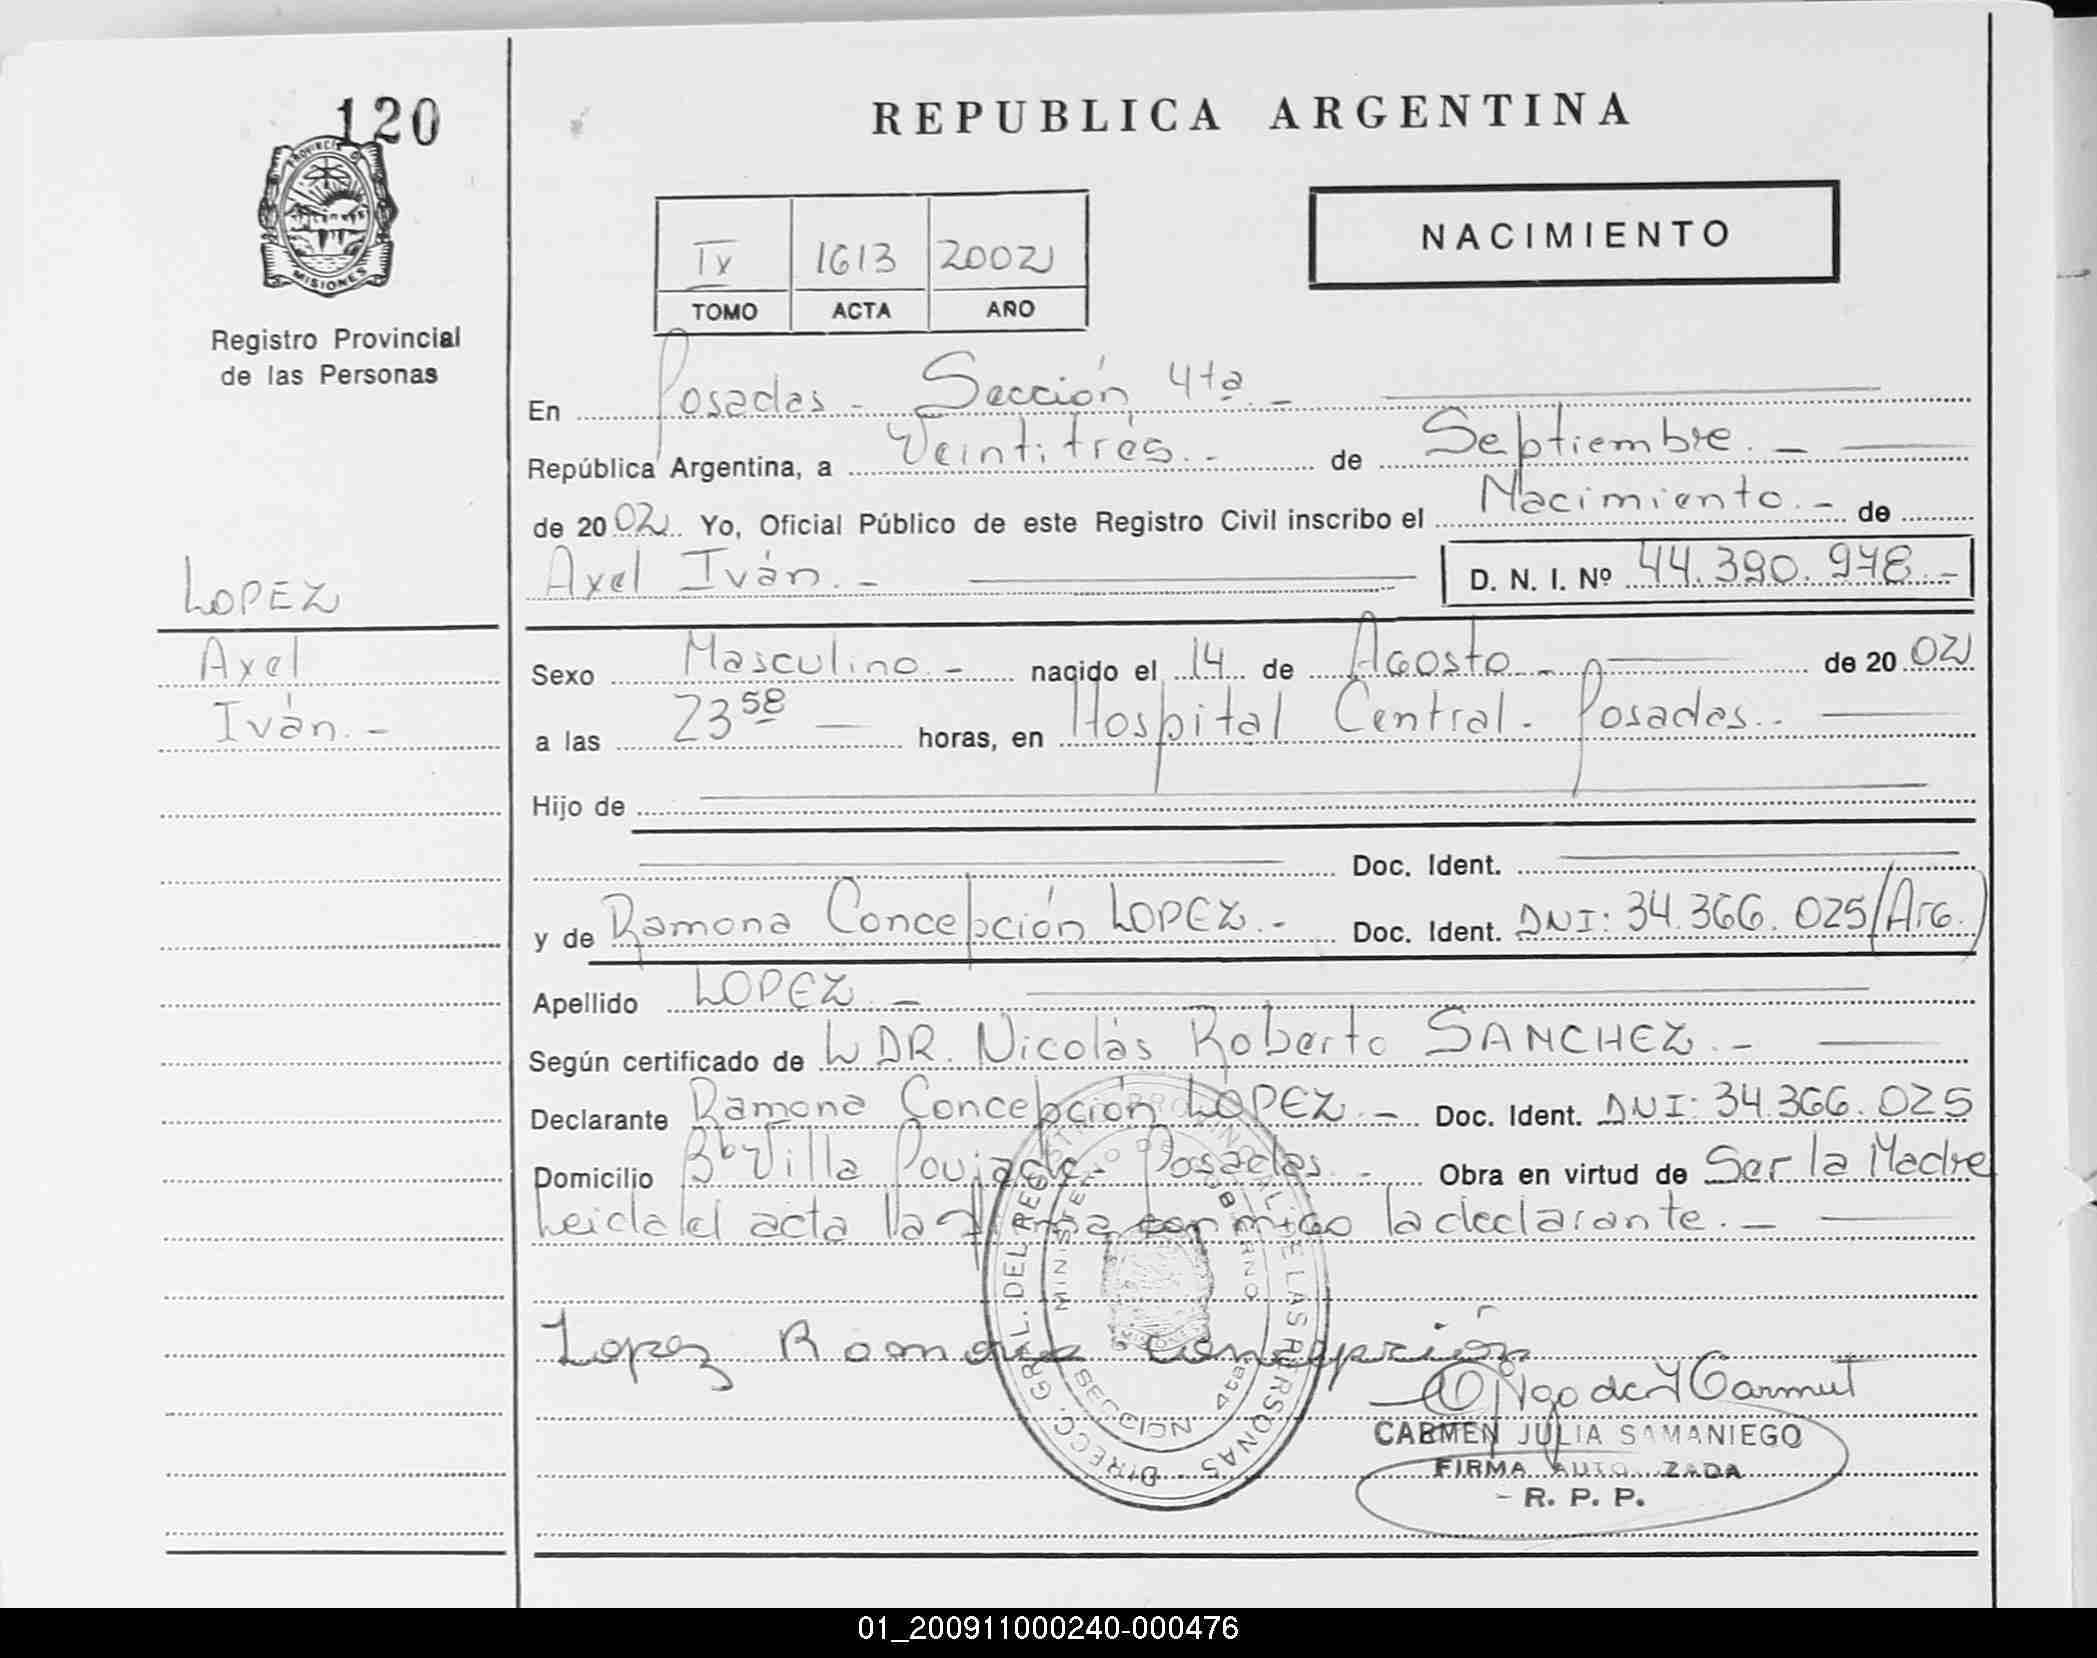 120
PROVINCIA D
MISIONES
Registro Provincial
de las Personas
LOPEZ
Axel
Iván.-
REPUBLICA ARGENTINA
NACIMIENTO
IX 1613 2002
TOMO ACTA AÑO
En Posadas - Sección 4ta. -
República Argentina, a Veintitrés. - de Septiembre. -
de 2002. Yo, Oficial Público de este Registro Civil inscribo el Nacimiento. - de
Axel Iván. - D. N. I. Nº 44.390.978. -
Sexo Masculino. - nacido el 14 de Agosto. - de 2002
a las 23 58 horas, en Hospital Central. Posadas. -
Hijo de
Doc. Ident.
y de Ramona Concepción LOPEZ. - Doc. Ident. DNI: 34.366.025 (Arg.)
Apellido LOPEZ. -
Según certificado de DR. Nicolás Roberto SANCHEZ. -
Declarante Ramona Concepción LOPEZ. - Doc. Ident. DNI: 34.366.025
Domicilio Bº Villa Poujade - Posadas. - Obra en virtud de Ser la Madre
Leida el acta la firma conmigo la declarante. -
DIRECC. GRAL. DEL REGISTRO PROVINCIAL DE LAS PERSONAS
MINISTERIO DE GOBIERNO
SECCION 4ta
Lopez Ramona Concepción
CARMEN JULIA SAMANIEGO
FIRMA AUTORIZADA
- R. P. P.
01_200911000240-000476